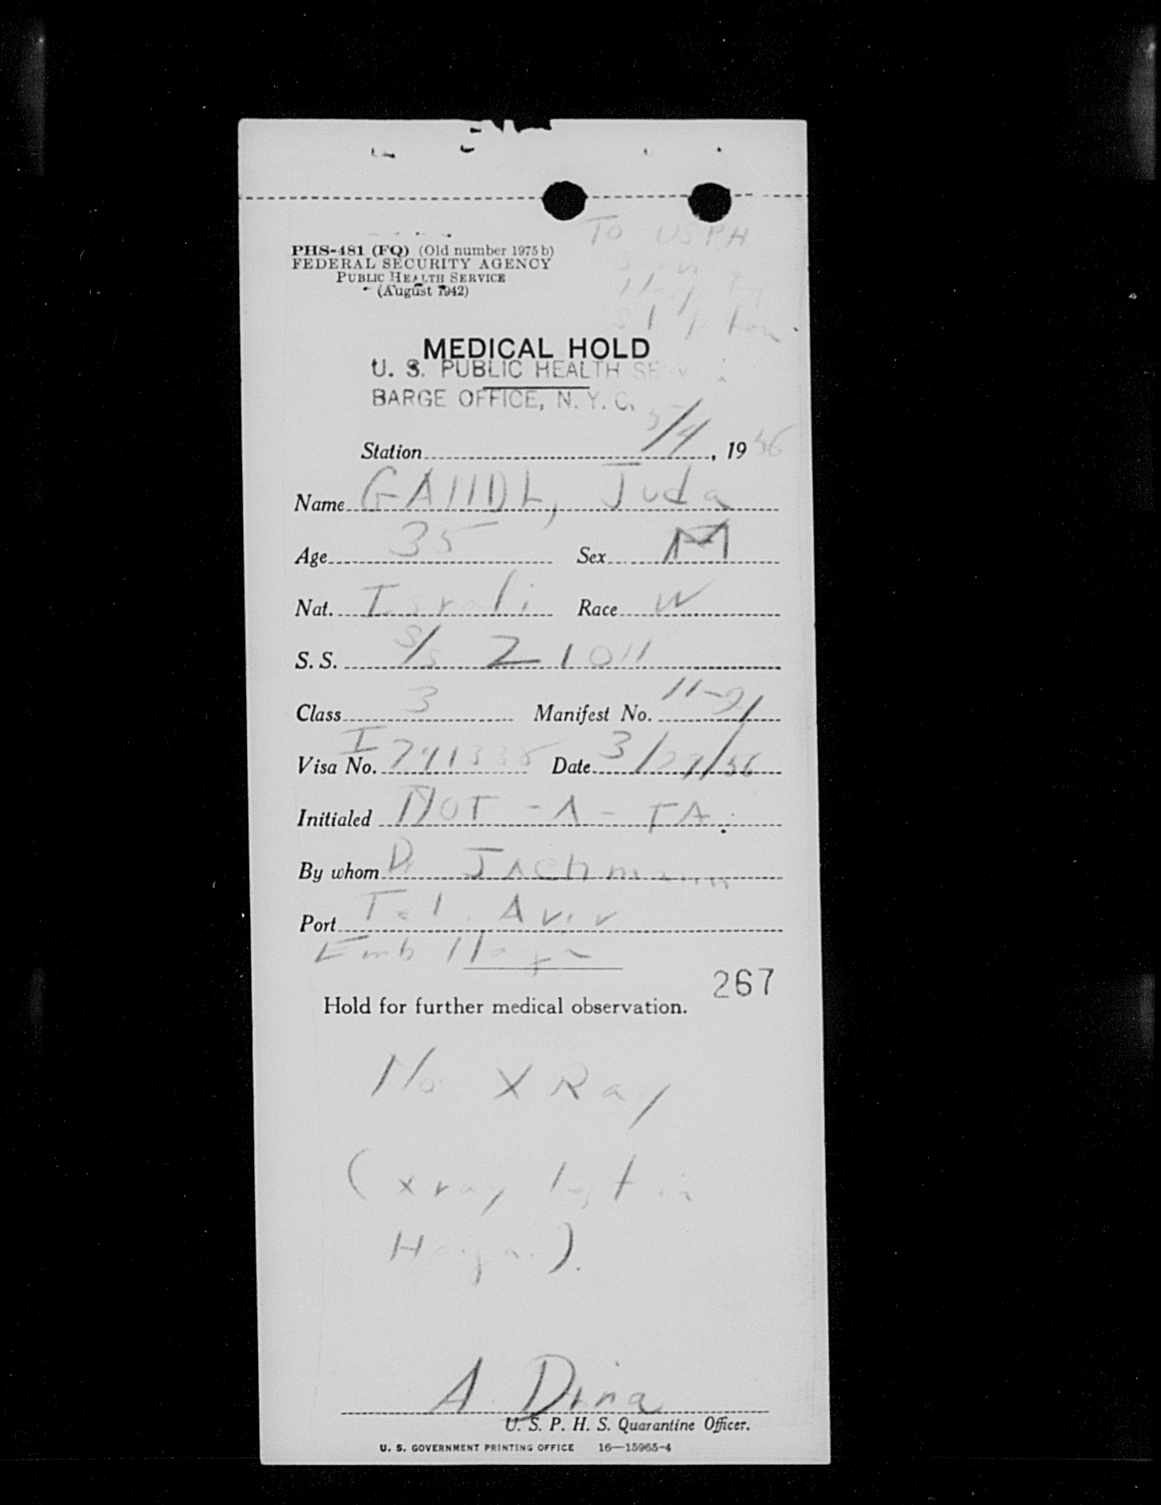 TO USPH
PHS-481 (FQ) (Old number 1975 b)
FEDERAL SECURITY AGENCY
PUBLIC HEALTH SERVICE
(August 1942)
MEDICAL HOLD
U. S. PUBLIC HEALTH
BARGE OFFICE, N. Y. C.
Station 5/4, 1956
Name Juda
Age 35 Sex M
Nat. Israli Race W
S. S. S/S ZION
Class 3 Manifest No. 11-21
Visa No. I Date 3/27/56
Initialed NOT-A-TA.
By whom Dr Jachmann
Port Tel Aviv
Emb
267
Hold for further medical observation.
No X Ray
(x ray lost in
A. Dina
U. S. P. H. S. Quarantine Officer.
U. S. GOVERNMENT PRINTING OFFICE 16—15965-4